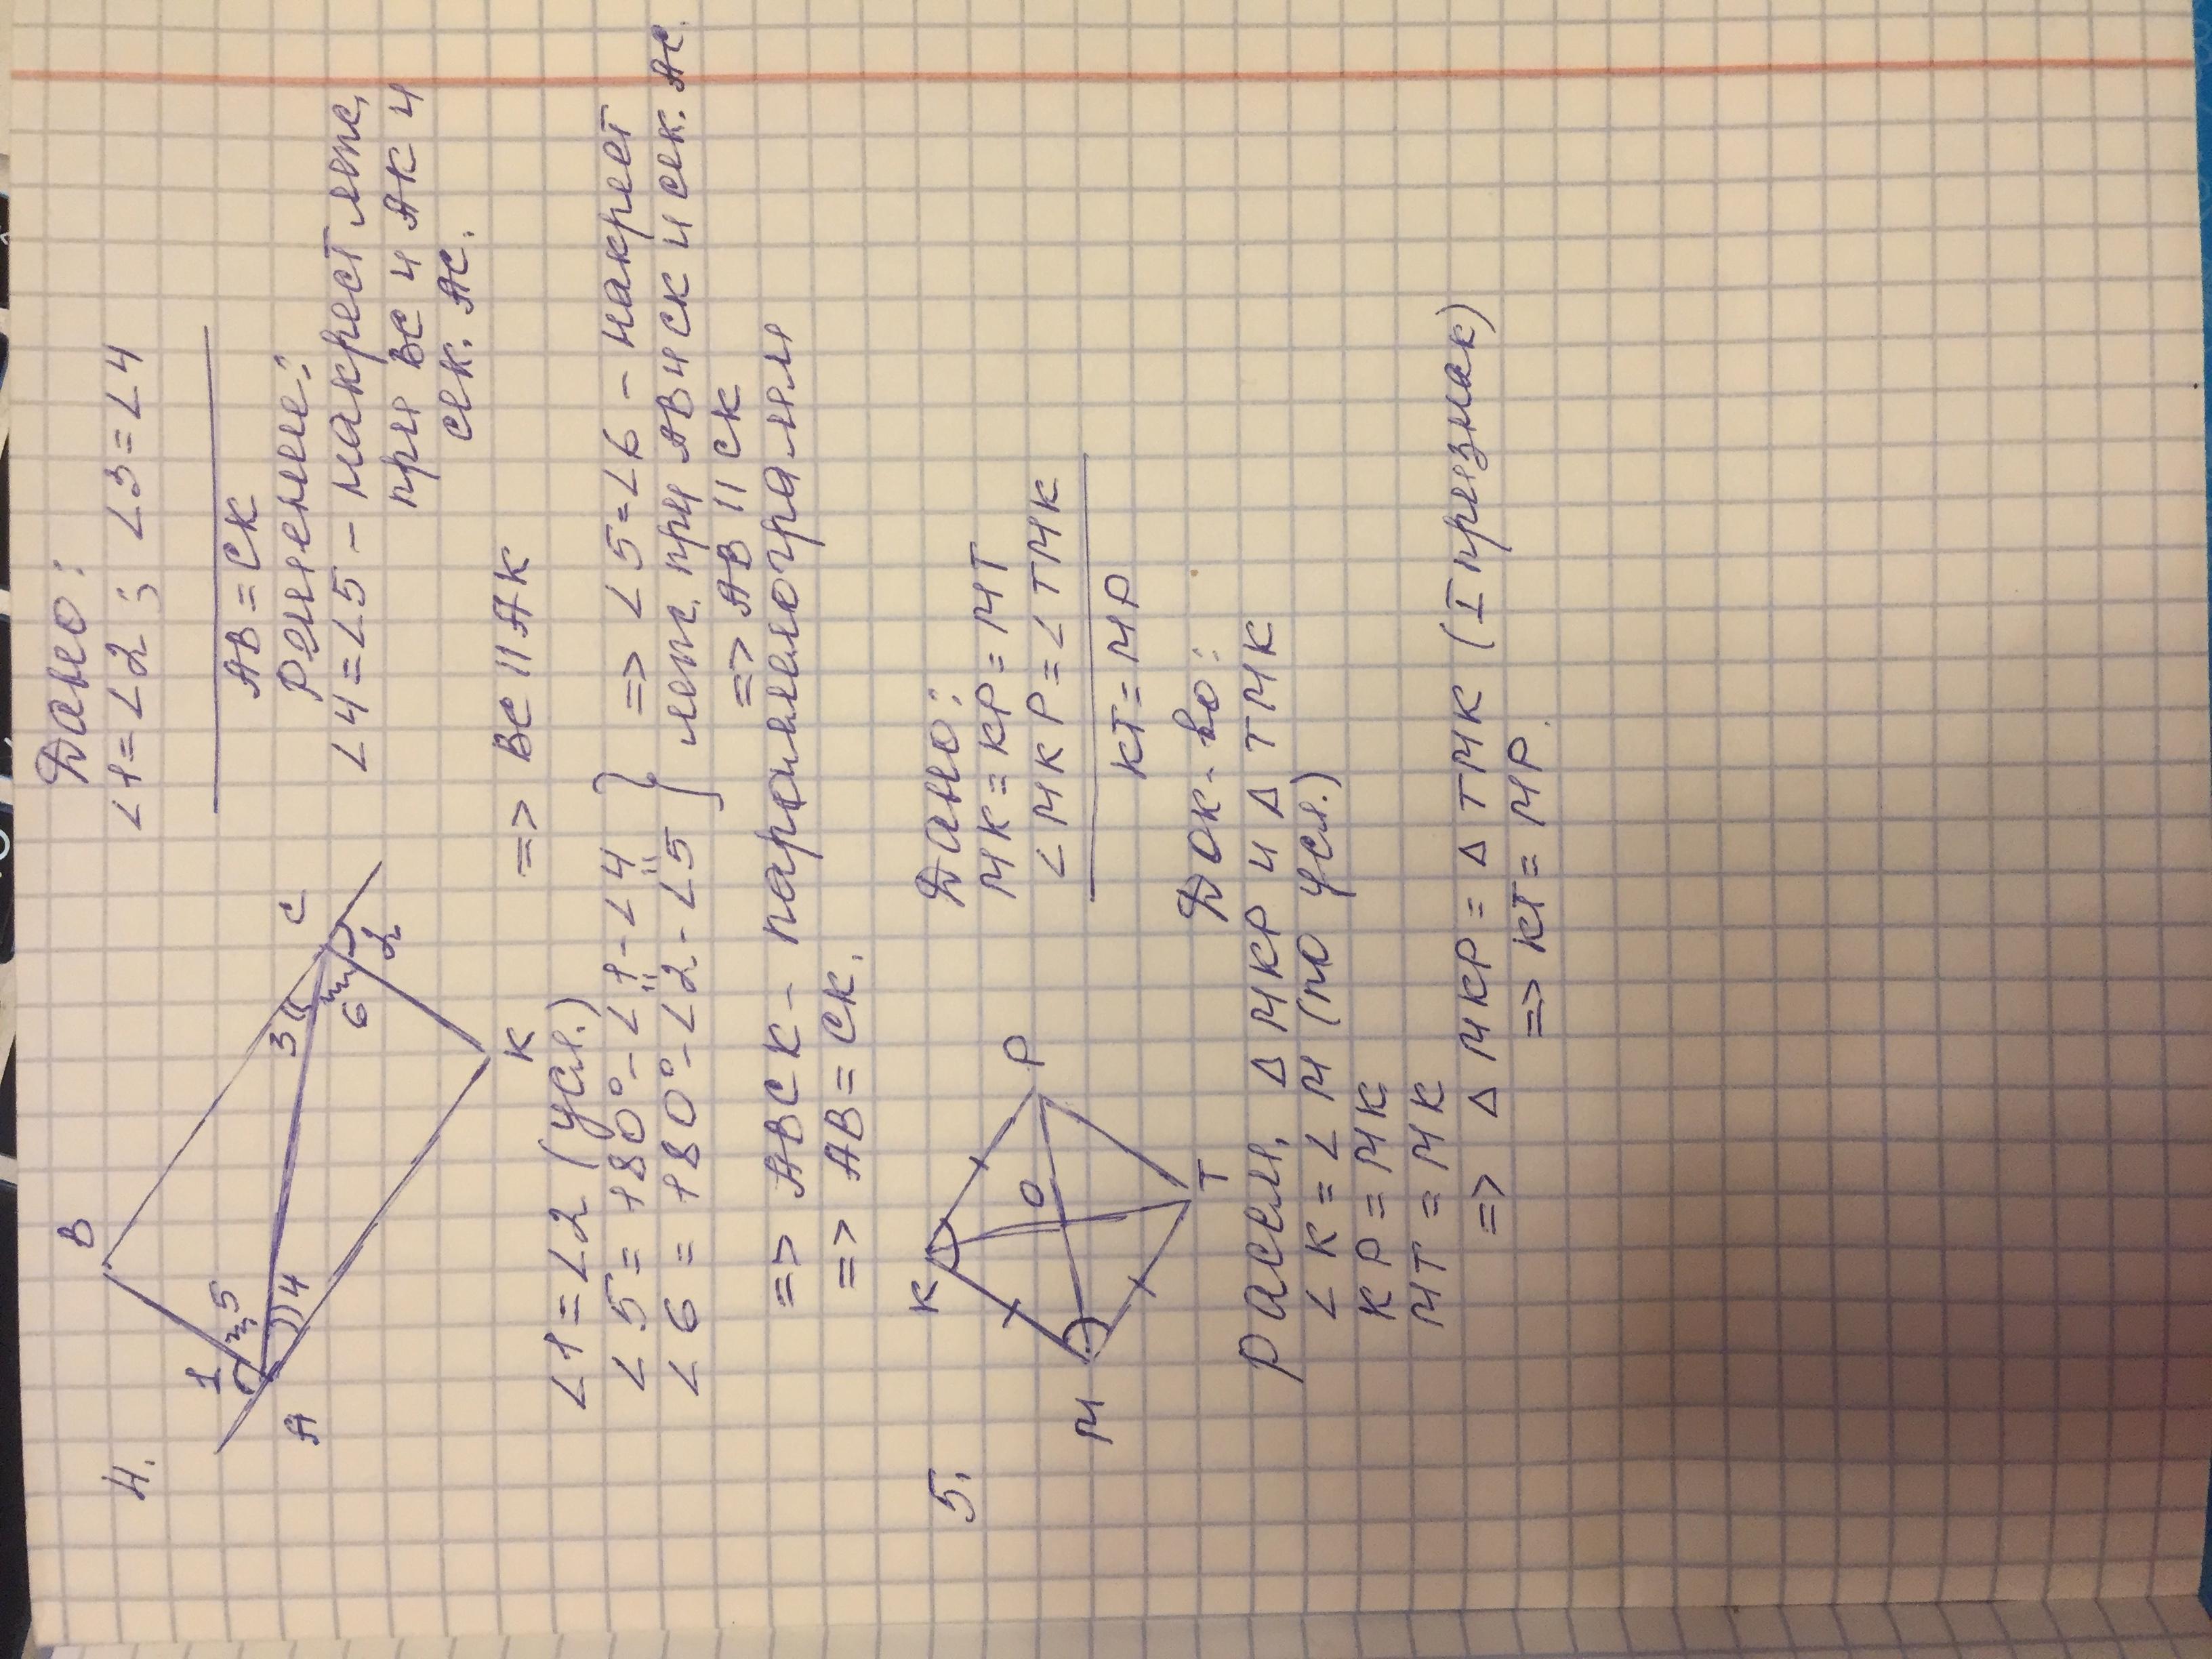 4.
B
C
A
K
1
5
4
3
6
2
Дано:
∠1=∠2; ∠3=∠4
AB=CK
Решение:
∠4=∠5 - накрест леж.
при BC и AK и
сек. AC.
=> BC || AK
∠1=∠2 (усл.)
∠5=180°-∠1-∠4
∠6=180°-∠2-∠5
=> ∠5=∠6 - накрест
леж. при AB и CK и сек. AC
=> AB || CK
=> ABCK - параллелограмм
=> AB=CK.
5.
K
P
O
M
T
Дано:
MK=KP=MT
∠MKP=∠TMK
KT=MP
Док-во:
Рассм. Δ MKP и Δ TMK
∠K=∠M (по усл.)
KP=MK
MT=MK
=> Δ MKP=Δ TMK (I признак)
=> KT=MP.